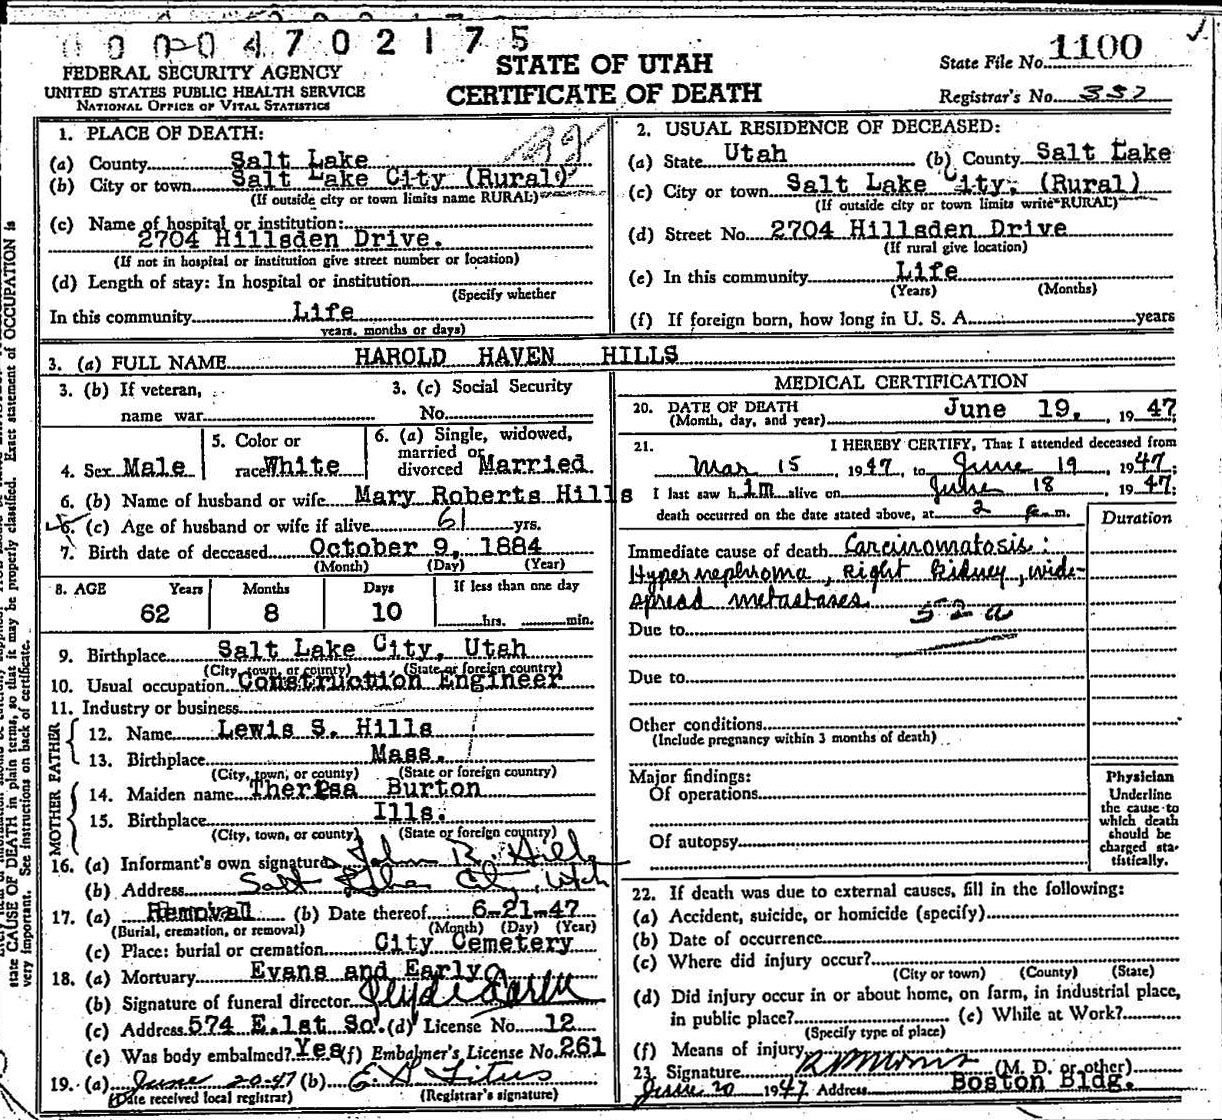 0004702175
FEDERAL SECURITY AGENCY
UNITED STATES PUBLIC HEALTH SERVICE
NATIONAL OFFICE OF VITAL STATISTICS
STATE OF UTAH
CERTIFICATE OF DEATH
State File No. 1100
Registrar's No. 337
1. PLACE OF DEATH:
(a) County Salt Lake
(b) City or town Salt Lake City (Rural)
(If outside city or town limits name RURAL)
(c) Name of hospital or institution:
2704 Hillsden Drive.
(If not in hospital or institution give street number or location)
(d) Length of stay: In hospital or institution
(Specify whether
In this community Life
years, months or days)
2. USUAL RESIDENCE OF DECEASED:
(a) State Utah (b) County Salt Lake
(c) City or town Salt Lake City, (Rural)
(If outside city or town limits write RURAL)
(d) Street No. 2704 Hillsden Drive
(If rural give location)
(e) In this community Life
(Years) (Months)
(f) If foreign born, how long in U. S. A. years
3. (a) FULL NAME HAROLD HAVEN HILLS
3. (b) If veteran,
name war
3. (c) Social Security
No.
4. Sex Male
5. Color or
race White
6. (a) Single, widowed,
married or
divorced Married
6. (b) Name of husband or wife Mary Roberts Hills
6. (c) Age of husband or wife if alive 61 yrs.
7. Birth date of deceased October 9, 1884
(Month) (Day) (Year)
8. AGE Years Months Days If less than one day
62 8 10 hrs. min.
9. Birthplace Salt Lake City, Utah
(City, town, or county) (State or foreign country)
10. Usual occupation Construction Engineer
11. Industry or business
FATHER
12. Name Lewis S. Hills
13. Birthplace Mass.
(City, town, or county) (State or foreign country)
MOTHER
14. Maiden name Theresa Burton
15. Birthplace Ills.
(City, town, or county) (State or foreign country)
16. (a) Informant's own signature John R. Hills
(b) Address Salt Lake City, Utah
17. (a) Removal (b) Date thereof 6-21-47
(Burial, cremation, or removal) (Month) (Day) (Year)
(c) Place: burial or cremation City Cemetery
18. (a) Mortuary Evans and Early
(b) Signature of funeral director Clyde Early
(c) Address 574 E.1st So. (d) License No. 12
(e) Was body embalmed? Yes (f) Embalmer's License No. 261
19. (a) June 20-47 (b) E. H. Titus
(Date received local registrar) (Registrar's signature)
MEDICAL CERTIFICATION
20. DATE OF DEATH June 19, 1947
(Month, day, and year)
21. I HEREBY CERTIFY, That I attended deceased from
Mar 15, 1947, to June 19, 1947;
I last saw him alive on June 18, 1947;
death occurred on the date stated above, at 2 m.
Duration
Immediate cause of death Carcinomatosis:
Hypernephroma, right kidney, wide-
spread metastases
52a
Due to
Due to
Other conditions
(Include pregnancy within 3 months of death)
Major findings:
Of operations
Of autopsy
Physician
Underline
the cause to
which death
should be
charged sta-
tistically.
22. If death was due to external causes, fill in the following:
(a) Accident, suicide, or homicide (specify)
(b) Date of occurrence
(c) Where did injury occur?
(City or town) (County) (State)
(d) Did injury occur in or about home, on farm, in industrial place,
in public place? (e) While at Work?
(Specify type of place)
(f) Means of injury
23. Signature (M. D. or other)
June 20 1947 Address Boston Bldg.
state CAUSE OF DEATH in plain terms, so that it may be properly classified. Exact statement of OCCUPATION is
very important. See instructions on back of certificate.